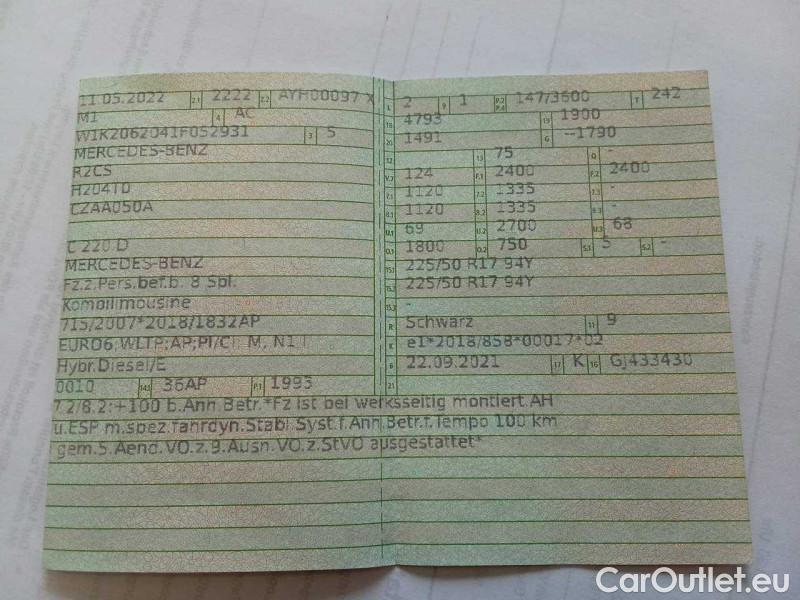 11.05.2022 2.1 2222 2.2 AYH00097 X
M1 4 AC
W1K2062041F052931 3 5
MERCEDES-BENZ
R2CS
H204T0
CZAA050A
C 220 D
MERCEDES-BENZ
Fz.z.Pers.bef.b. 8 Spl.
Kombilimousine
715/2007*2018/1832AP
EURO6,WLTP;AP;PI/CI M, N1 I
Hybr.Diesel/E
0010 14.1 36AP P.1 1995
L 2 9 1 P.2 P.4 147/3600 T 242
18 4793 19 1900
20 1491 G --1790
12 - 13 75 Q -
V.7 124 F.1 2400 F.2 2400
7.1 1120 7.2 1335 7.3 -
8.1 1120 8.2 1335 8.3 -
U.1 69 U.2 2700 U.3 68
O.1 1800 O.2 750 S.1 5 S.2 -
15.1 225/50 R17 94Y
15.2 225/50 R17 94Y
15.3 -
R Schwarz 11 9
K e1*2018/858*00017*02
6 22.09.2021 17 K 16 GJ433430
21
7.2/8.2:+100 b.Anh.Betr.*Fz ist bei werksseitig montiert.AH
u.ESP m.spez.fahrdyn.Stabi.Syst.f.Anh.Betr.f.Tempo 100 km
gem.5.Aend.VO.z.9.Ausn.VO.z.StVO ausgestattet*
CarOutlet.eu